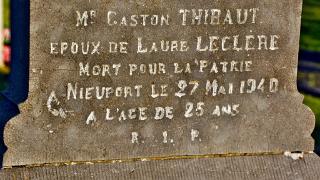 Mr GASTON THIBAUT
EPOUX DE LAURE LECLÈRE
MORT POUR LA PATRIE
A NIEUPORT LE 27 MAI 1940
A L'AGE DE 25 ANS
R. I. P.